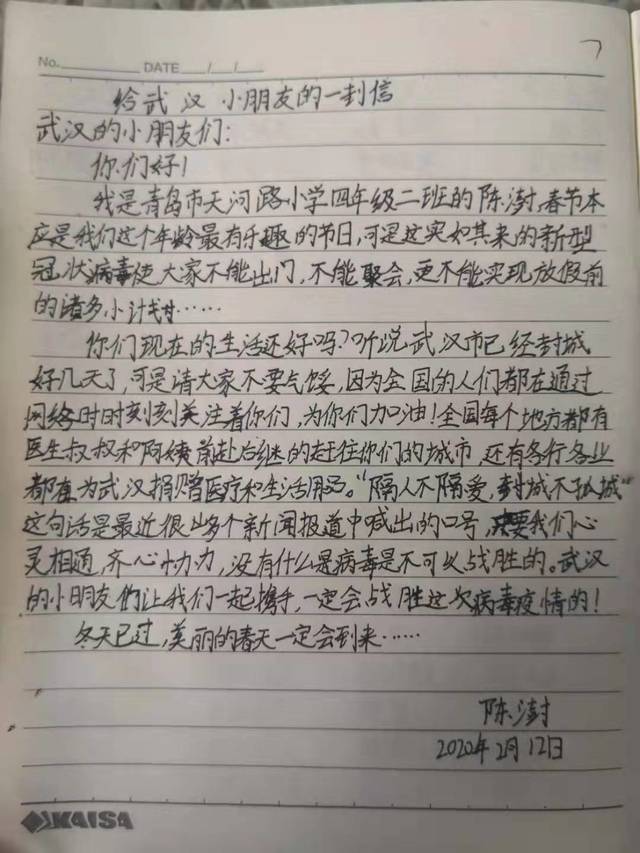 No. DATE / /
给武汉小朋友的一封信
武汉的小朋友们：
你们好！
我是青岛市天河路小学四年级二班的陈澍,春节本
应是我们这个年龄最有乐趣的节日,可是这突如其来的新型
冠状病毒使大家不能出门,不能聚会,更不能实现放假前
的诸多小计划……
你们现在的生活还好吗?听说武汉市已经封城
好几天了,可是请大家不要气馁,因为全国的人们都在通过
网络时时刻刻关注着你们,为你们加油!全国每个地方都有
医生叔叔和阿姨前赴后继的赶往你们的城市,还有各行各业
都在为武汉捐赠医疗和生活用品。“隔人不隔爱,封城不孤城”
这句话是最近很多个新闻报道中喊出的口号,只要我们心
灵相通,齐心协力,没有什么是病毒是不可以战胜的。武汉
的小朋友们让我们一起携手,一定会战胜这次病毒疫情的!
冬天已过,美丽的春天一定会到来……
陈澍
2020年2月12日
KAISA